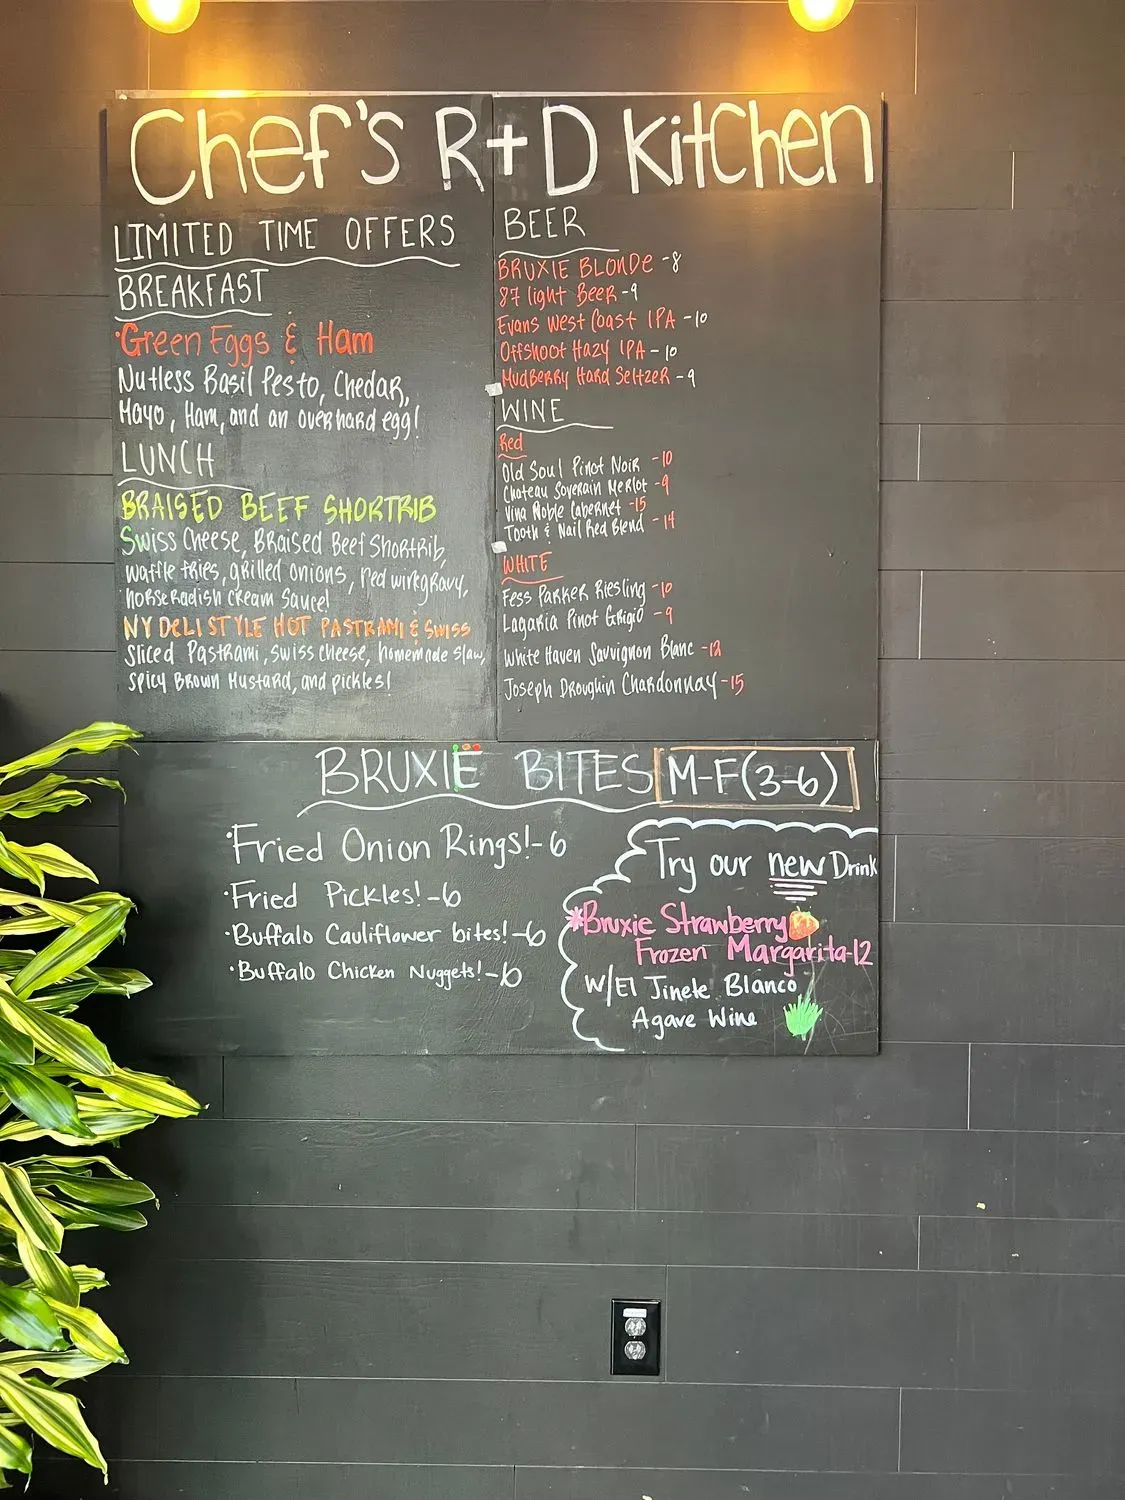 Chef's R+D Kitchen
LIMITED TIME OFFERS
BREAKFAST
·Green Eggs & Ham
Nutless Basil Pesto, Chedar,
Mayo, Ham, and an over hard egg!
LUNCH
BRAISED BEEF SHORTRIB
Swiss Cheese, Braised Beef Shortrib,
waffle fries, grilled onions, red wine gravy,
horseradish cream sauce!
NY DELI STYLE HOT PASTRAMI & SWISS
Sliced Pastrami, Swiss cheese, homemade slaw,
Spicy Brown Mustard, and pickles!
BEER
BRUXIE BLONDE -8
87 light Beer -9
Evans West Coast IPA -10
Offshoot Hazy IPA - 10
Mudberry Hard Seltzer - 9
WINE
Red
Old Soul Pinot Noir -10
Chateau Soverain Merlot -9
Vina Noble Cabernet -15
Tooth & Nail Red Blend - 14
WHITE
Fess Parker Riesling -10
Lagaria Pinot Grigio -9
White Haven Sauvignon Blanc -12
Joseph Droughin Chardonnay -15
BRUXIE BITES M-F(3-6)
·Fried Onion Rings!-6
·Fried Pickles!-6
·Buffalo Cauliflower bites!-6
·Buffalo Chicken Nuggets!-6
Try our new Drink
*Bruxie Strawberry
Frozen Margarita-12
W/El Jinete Blanco
Agave Wine